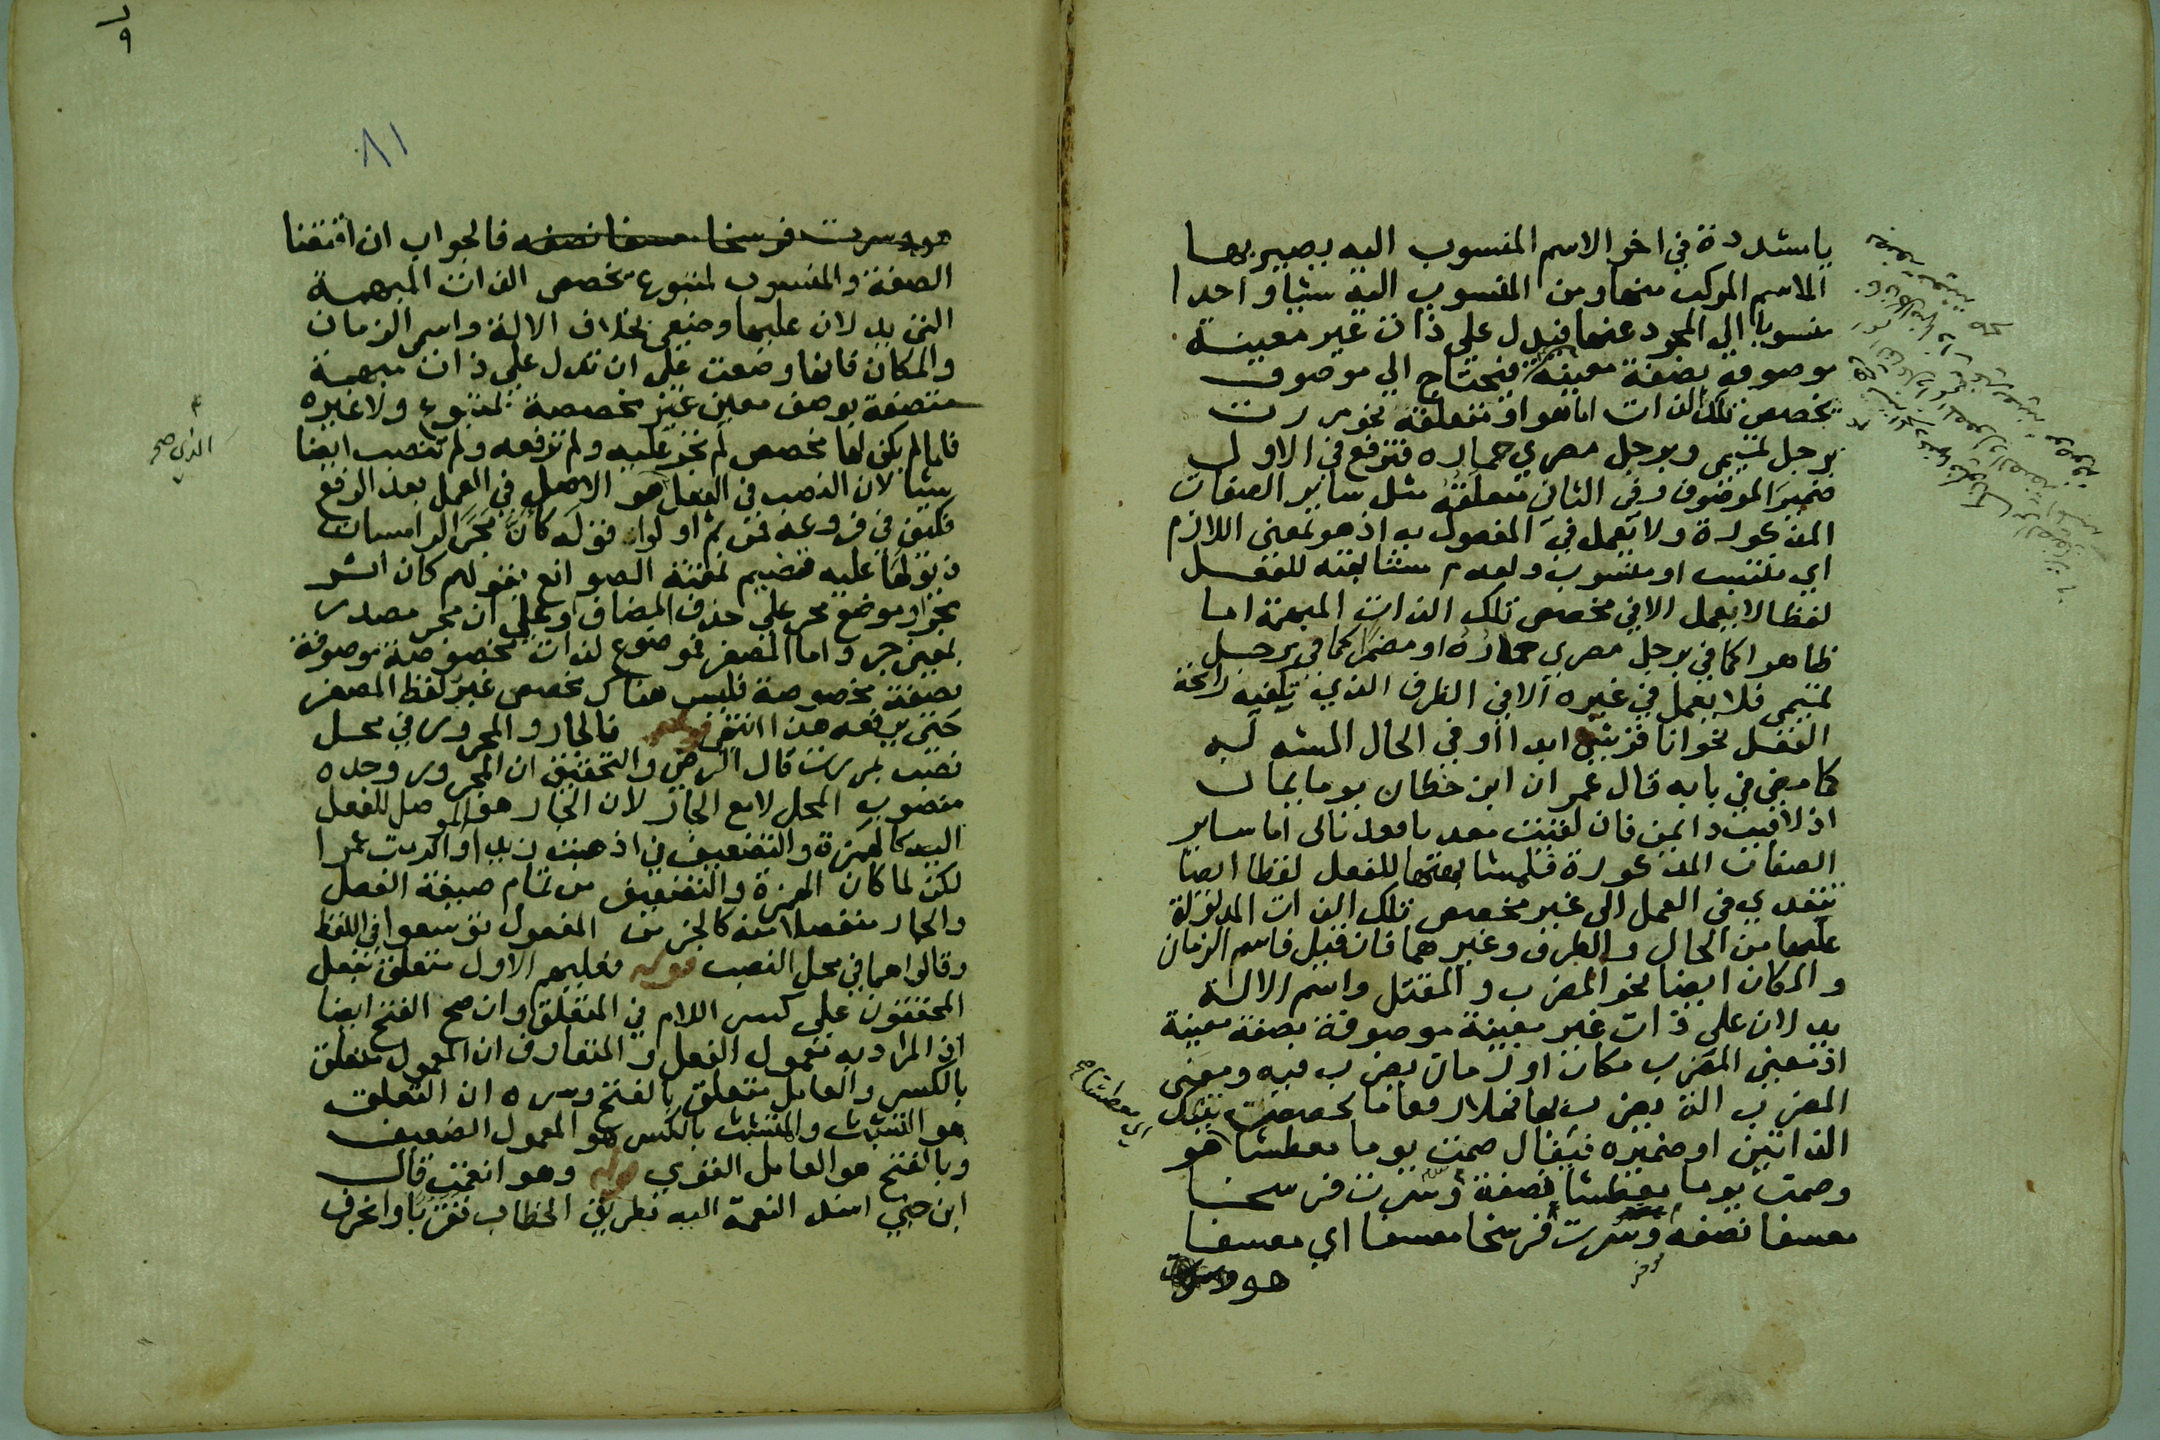 يا مشددة في اخر الاسم المنسوب اليه يصير بها
الاسم المركب منها ومن المنسوب اليه شيا واحدا
منسوبا الي المجرد عنها فيدل علي ذات غير معينة
موصوفه بصفة معينة فتحتاج الي موصوف
يخصص تلك الذات اما هو او متعلقه نحو مررت
برجل تميمي وبرجل مصري حماره فترفع في الاول
ضمير الموصوف وفي الثان متعلقه مثل ساير الصفات
المذكورة ولا يعمل في المفعول به اذ هو بمعني اللازم
اي منتسب او منسوب ولعدم مشابهته للفعل
لفظا لا يعمل الا في مخصص تلك الذات المبهمة اما
ظاهرا كما في برجل مصري حماره او مضمرا كما في برجل
تميمي فلا يعمل في غيره الا في الظرف الذي يكفيه رائحة
الفعل نحو انا قرشي ابدا او في الحال المشبه له
كما مضي في بابه قال عمران ابن حطان يوما يمان
اذ لاقيت ذا يمن فان لقيت معديا فعدناني اما ساير
الصفات المذكورة فلمشابهتها للفعل لفظا ايضا
تتعدي في العمل الي غير مخصص تلك الذات المدلولة
عليها من الحال والظرف وغيرهما فان قيل فاسم الزمان
والمكان ايضا نحو المضرب والمقتل واسم الالة
يدلان علي ذات غير معينة موصوفة بصفة معينة
اذ معني المضرب مكان او زمان يضرب فيه ومعني
المضرب الة يضرب بها فهلا رفعا ما يخصص تينك
الذاتين او ضميره فيقال صمت يوما معطشا هو
وصمت يوما معطشا نصفه وسرت فرسخا
معسفا نصفه وسرت فرسخا معسفا اي معسفا
هو
اي معطشا
٨١
٩
هو وسرت فرسخا معسفا نصفه فالجواب ان اقتضا
الصفة والمنسوب لمتبوع يخصص الذات المبهمة
التي يدلان عليها وضعي بخلاف الالة واسم الزمان
والمكان فانها وضعت علي ان تدل علي ذات مبهمة
متصفة بوصف معين غير مخصصة بمتبوع ولا غيره
فلما لم يكن لها مخصص لم تجر عليه ولم ترفعه ولم تنصب ايضا
شيا لان النصب في الفعل هو الاصل في العمل بعد الرفع
فكيف في فروعه فمن ثم اولوا قوله كان مجر الرامسات
ذيولها عليه قضيم نمقته الصوانع بقولهم كان اثر
مجر او موضع مجر علي حذف المضاف او علي ان مجر مصدر
بمعني جر واما المصغر فموضوع لذات مخصوصة موصوفة
بصفة مخصوصة فليس هناك مخصص غير لفظ المصغر
حتي يرفعه هذا انتهي قوله فالجار والمجرور في محل
نصب بمررت قال الرضي والتحقيق ان المجرور وحده
منصوب المحل لا مع الجار لان الجار هو الموصل للفعل
اليه كالهمزة والتضعيف في اذهبت زيدا او اكرمت عمرا
لكن لما كان الهمزة والتضعيف من تمام صيغة الفعل
والجار منفصلا منه كالجزء من المفعول توسعوا في اللفظ
وقالوا هما في محل النصب قوله فعليهم الاول متعلق بفعل
المحققون علي كسر اللام في المتعلق وان صح الفتح ايضا
اذ المراد به معمول الفعل والمتعارف ان المعمول متعلق
بالكسر والعامل متعلق بالفتح وسره ان التعلق
هو التشبث والمتشبث بالكسر هو المعمول الضعيف
وبالفتح هو العامل القوي قوله وهو انعمت قال
ابن جني اسند النعمة اليه بطريق الخطاب تقربا وانحرف
الذي صح